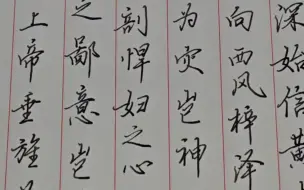 深始信黄
向西风梓泽
为灾岂神
剖悍妇之心
之鄙意岂
上帝垂旌